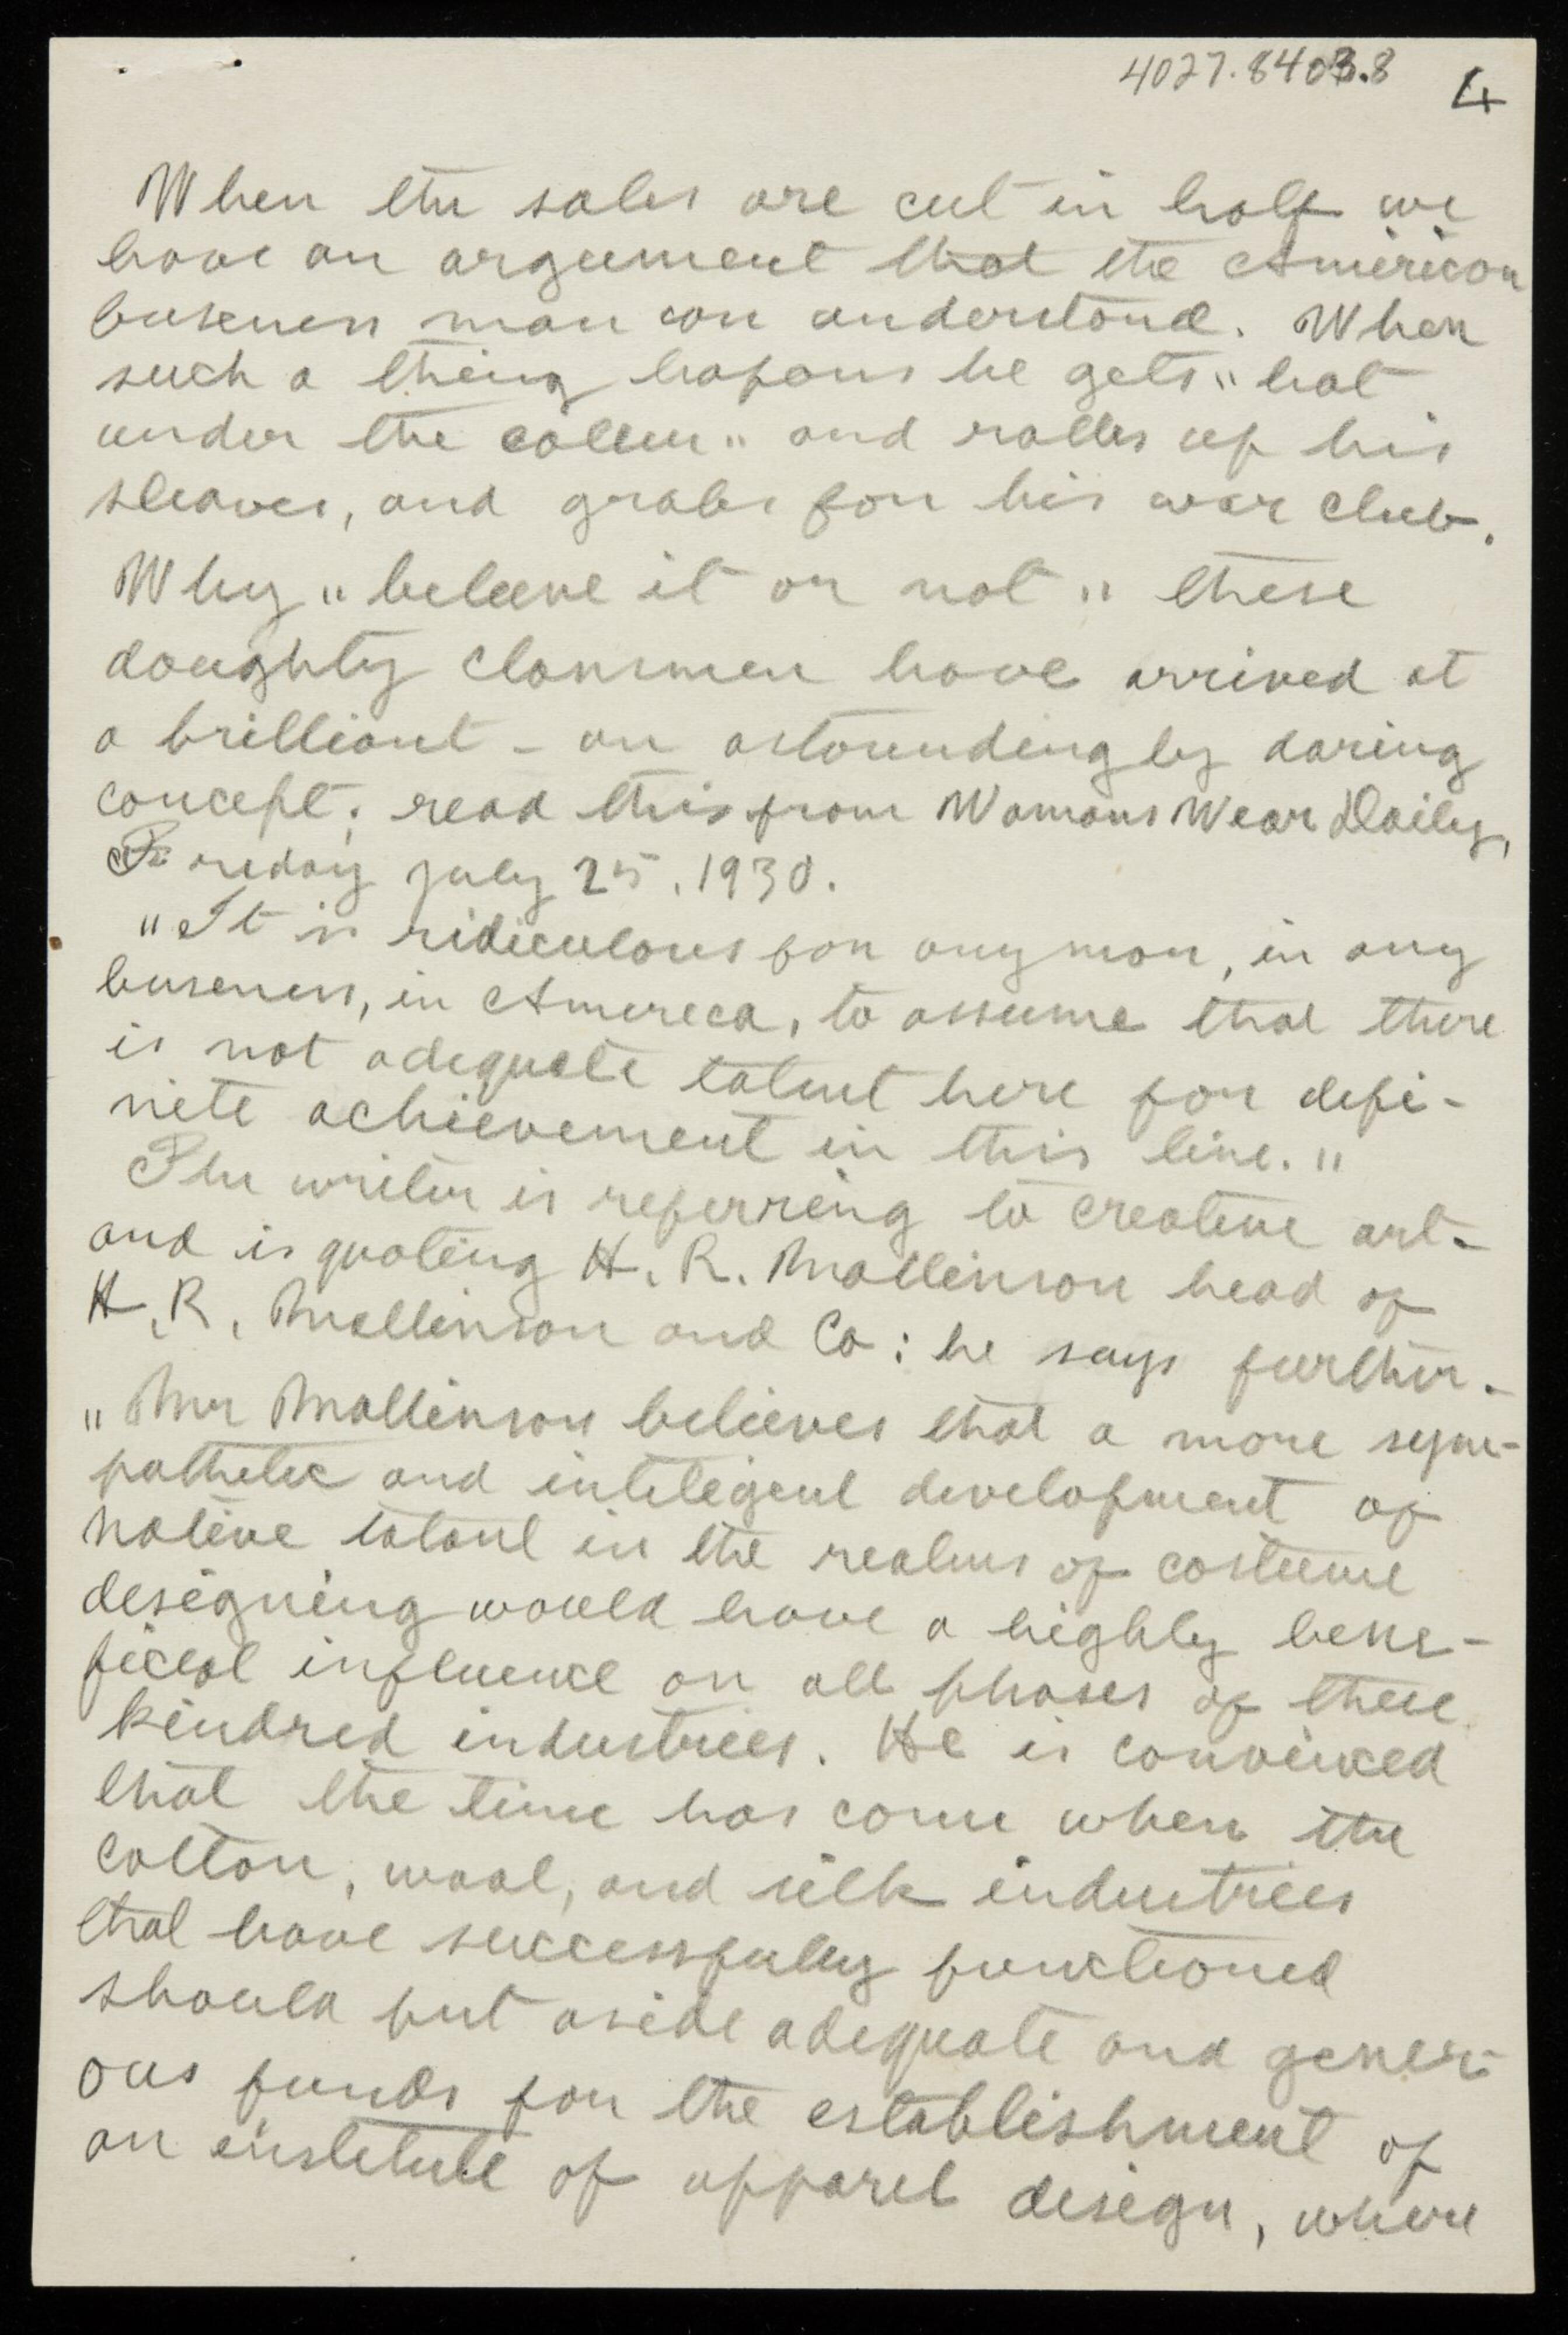 4027.8403.8
4
When the sales are cut in half we
have an argument that the American
buseness man can understand. When
such a thing hapens he gets "hot
under the coller" and rolles up his
sleaves, and grabs for his war club.
Why "beleeve it or not" these
doughty clansmen have arrived at
a brilliant - an astoundingly daring
concept; read this from Womans Wear Daily,
Friday july 25, 1930.
"It is ridiculous for any man, in any
buseness, in America, to assume that there
is not adequate talent here for defi-
nite achievement in this line."
The writer is referring to creative art-
and is quoting H. R. Mallinson head of
H. R. Mallinson and Co: he says further.
"Mr Mallinson believes that a more sym-
pathetic and inteligent development of
native talant in the realms of costume
designing would have a highly bene-
ficial influence on all phases of these
kindred industries. He is convinced
that the time has come when the
cotton, wool, and silk industries
that have successfully functioned
should put aside adequate and gener-
ous funds for the establishment of
an institute of apparel design, where